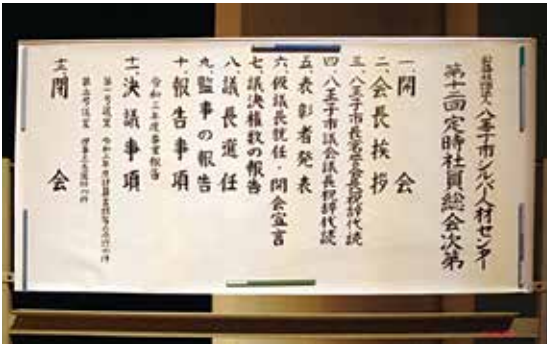 公益社団法人 八王子市シルバー人材センター
第十二回 定時社員総会次第
一、開会
二、会長挨拶
三、八王子市長祝辞代読
四、八王子市議会議長祝辞代読
五、表彰者発表
六、仮議長就任・開会宣言
七、議決権数の報告
八、議長選任
九、監事の報告
十、報告事項
令和三年度事業報告
十一、決議事項
第一号議案 令和三年度計算書類等の承認の件
第五号議案 理事
十二、閉会